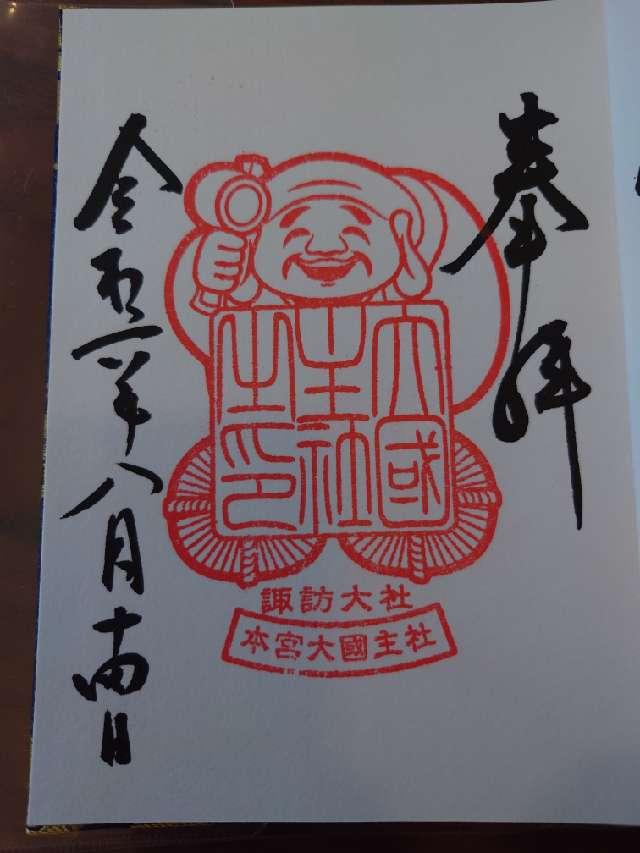 奉拝
大國
主社
之印
諏訪大社
本宮大國主社
令和二年八月十四日